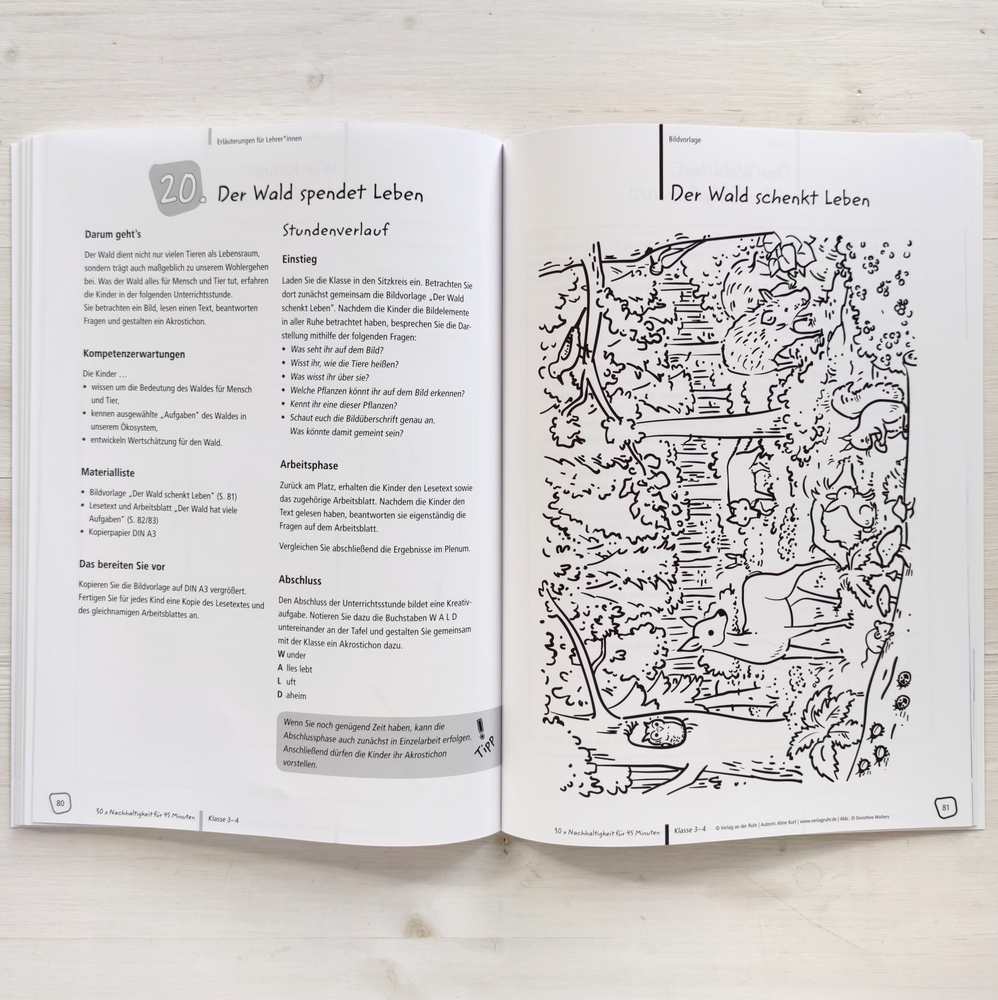 Erläuterungen für Lehrer*innen
20. Der Wald spendet Leben
Darum geht's
Der Wald dient nicht nur vielen Tieren als Lebensraum,
sondern trägt auch maßgeblich zu unserem Wohlergehen
bei. Was der Wald alles für Mensch und Tier tut, erfahren
die Kinder in der folgenden Unterrichtsstunde.
Sie betrachten ein Bild, lesen einen Text, beantworten
Fragen und gestalten ein Akrostichon.
Kompetenzerwartungen
Die Kinder …
• wissen um die Bedeutung des Waldes für Mensch
und Tier,
• kennen ausgewählte „Aufgaben“ des Waldes in
unserem Ökosystem,
• entwickeln Wertschätzung für den Wald.
Materialliste
• Bildvorlage „Der Wald schenkt Leben“ (S. 81)
• Lesetext und Arbeitsblatt „Der Wald hat viele
Aufgaben“ (S. 82/83)
• Kopierpapier DIN A3
Das bereiten Sie vor
Kopieren Sie die Bildvorlage auf DIN A3 vergrößert.
Fertigen Sie für jedes Kind eine Kopie des Lesetextes und
des gleichnamigen Arbeitsblattes an.
Stundenverlauf
Einstieg
Laden Sie die Klasse in den Sitzkreis ein. Betrachten Sie
dort zunächst gemeinsam die Bildvorlage „Der Wald
schenkt Leben“. Nachdem die Kinder die Bildelemente
in aller Ruhe betrachtet haben, besprechen Sie die Dar-
stellung mithilfe der folgenden Fragen:
• Was seht ihr auf dem Bild?
• Wisst ihr, wie die Tiere heißen?
• Was wisst ihr über sie?
• Welche Pflanzen könnt ihr auf dem Bild erkennen?
• Kennt ihr eine dieser Pflanzen?
• Schaut euch die Bildüberschrift genau an.
Was könnte damit gemeint sein?
Arbeitsphase
Zurück am Platz, erhalten die Kinder den Lesetext sowie
das zugehörige Arbeitsblatt. Nachdem die Kinder den
Text gelesen haben, beantworten sie eigenständig die
Fragen auf dem Arbeitsblatt.
Vergleichen Sie abschließend die Ergebnisse im Plenum.
Abschluss
Den Abschluss der Unterrichtsstunde bildet eine Kreativ-
aufgabe. Notieren Sie dazu die Buchstaben W A L D
untereinander an der Tafel und gestalten Sie gemeinsam
mit der Klasse ein Akrostichon dazu.
W under
A lles lebt
L uft
D aheim
Wenn Sie noch genügend Zeit haben, kann die
Abschlussphase auch zunächst in Einzelarbeit erfolgen.
Anschließend dürfen die Kinder ihr Akrostichon
vorstellen.
! Tipp
80
30 x Nachhaltigkeit für 45 Minuten | Klasse 3–4
Bildvorlage
Der Wald schenkt Leben
30 x Nachhaltigkeit für 45 Minuten | Klasse 3–4
© Verlag an der Ruhr | Autorin: Aline Kurt | www.verlagruhr.de | Abb.: © Dorothee Wolters
81